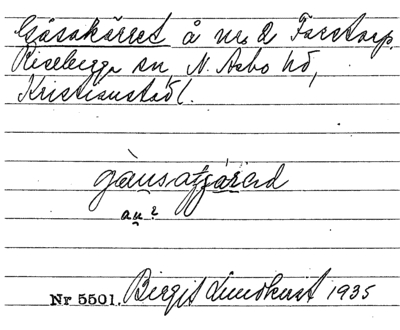 Gåsakärret å nr 2 Färstorp,
Riseberga sn N. Åsbo hd,
Kristianstads l.
gàu̯satjär̯ed
au̯?
Nr 5501. Birgit Lundkvist 1935